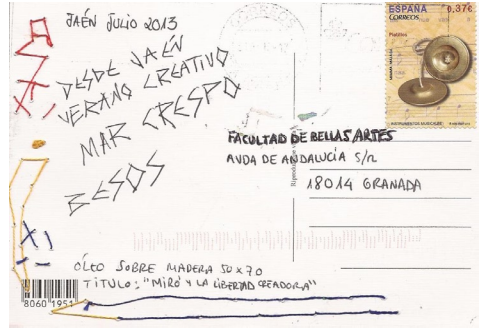 JAÉN JULIO 2013
DESDE JAÉN
VERANO CREATIVO
MAR CRESPO
BESOS
ESPAÑA 0,37€
CORREOS
Platillos
INSTRUMENTOS MUSICALES
FACULTAD DE BELLAS ARTES
AVDA DE ANDALUCÍA S/n
18014 GRANADA
ÓLEO SOBRE MADERA 50 x 70
TÍTULO: "MIRÓ Y LA LIBERTAD CREADORA"
8060 1951